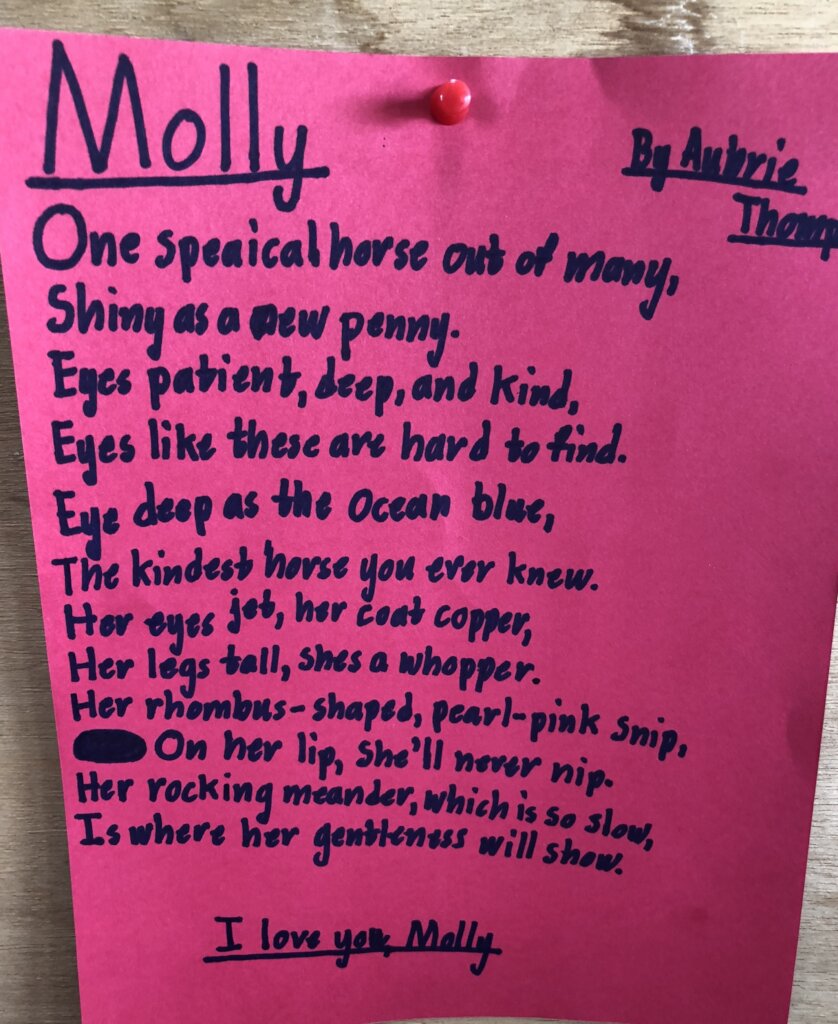 Molly
By Aubrie
Thomp
One speaical horse out of many,
Shiny as a new penny.
Eyes patient, deep, and kind,
Eyes like these are hard to find.
Eye deep as the ocean blue,
The kindest horse you ever knew.
Her eyes jet, her coat copper,
Her legs tall, shes a whopper.
Her rhombus-shaped, pearl-pink snip,
On her lip, she'll never nip.
Her rocking meander, which is so slow,
Is where her gentleness will show.
I love you, Molly